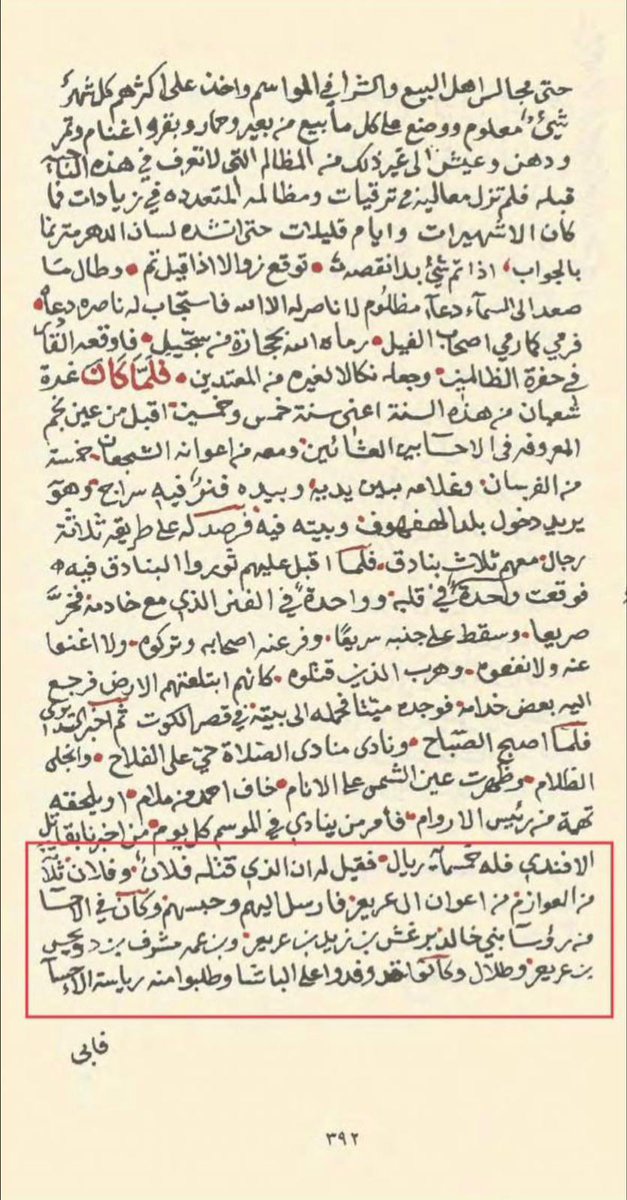 حتى مجالس اهل البيع والشرا في المواسم واخذ على اكثرهم كل شهر
شيئ معلوم ووضع على كل ما بيع من بعير وحمار وبقر واغنام وتمر
ودهن وعيش الى غير ذلك من المظالم التي لا تعرف في هذه
قبله فلم تزل معاليه في ترقيات ومظالمه المتعدده في زيادات فما
كان الا شهيرات وايام قليلات حتى انشده لسان الدهر مترنما
بالجواب، اذا تم شيئ بدا نقصه • توقع زوالا اذا قيل تم • وطال ما
صعد الى السمآء دعآء مظلوم لا ناصر له الا الله فاستجاب له ناصره دعآه •
فرمي كما رمي اصحاب الفيل • رماه الله بحجارة من سجيل • فاوقعه
في حفرة الظالمين • وجعله نكالا لغيره من المعتدين • فلما كان غرة
شعبان من هذه السنة اعني سنة خمس وخمسين اقبل من عين نجم
المعروفه في الاحسا بين العشائين • ومعه من اعوانه الشجعان خمسة
من الفرسان • وغلامه بين يديه وبيده فنر فيه سراج • وهو
يريد دخول بلد الهفهوف وبيته فيه فرصد له على طريقه ثلاثة
رجال • معهم ثلاث بنادق • فلما اقبل عليهم ثوروا البنادق فيه •
فوقعت واحدة في قلبه وواحدة في الفنر الذي مع خادمه فخر
صريعا • وسقط على جنبه سريعًا • وفر عنه اصحابه وتركوه • ولا اغنوا
عنه ولا نفعوه • وهرب الذين قتلوه • كانهم ابتلعتهم الارض فرجع
اليه بعض خدامه فوجده ميتا فحمله الى بيته في قصر الكوت ثم اخبر
فلما اصبح الصباح • ونادى منادى الصلاة حي على الفلاح • وانجلى
الظلام • وظهرت عين الشمس على الانام • خاف احمد من ملام • او يلحقه
تهمة من رئيس الاروام • فامر من ينادي في الموسم كل يوم • من اخبرنا بقاتل
الافندي فله خمسماية ريال • فقيل له ان الذي قتله فلان • وفلان
من العوازم من اعوان ال عريعر فارسل اليهم وحبسهم وكان في الاحسا
من رؤسآ بني خالد برغش بن زيد بن عريعر • وبن عمه مشرف بن دويحس
بن عريعر • وطلال وكانوا قد وفدوا على الباشا وطلبوا منه رياسة الاحسآ
فابى
٣٩٢